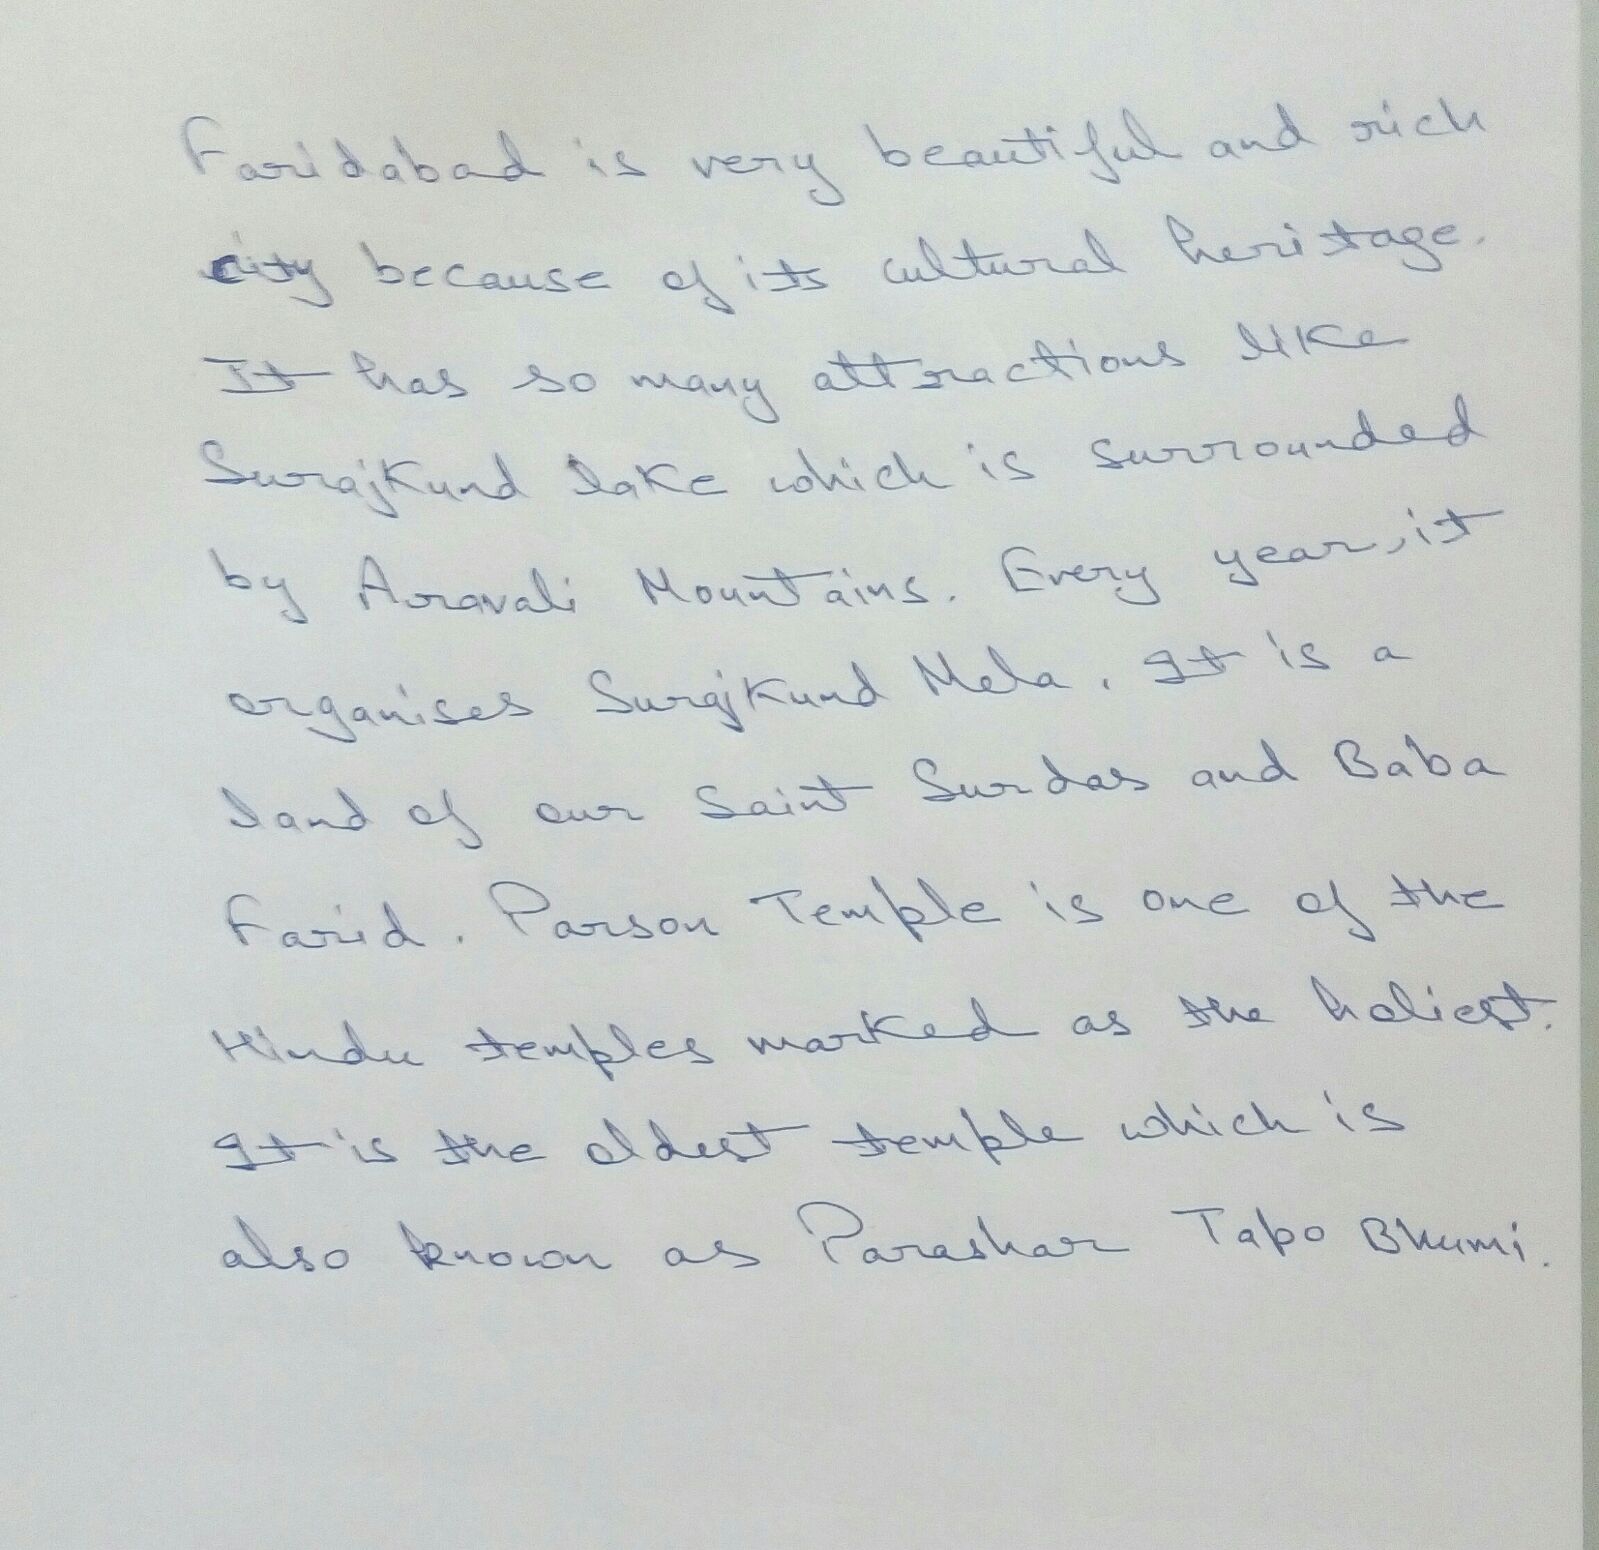 Faridabad is very beautiful and rich
city because of its cultural heristage.
It has so many attractions like
Surajkund lake which is surrounded
by Aravali Mountains. Every year, it
organises Surajkund Mela. It is a
land of our Saint Surdas and Baba
Farid. Parson Temple is one of the
Hindu temples marked as the holiest.
It is the oldest temple which is
also known as Parashar Tapo Bhumi.